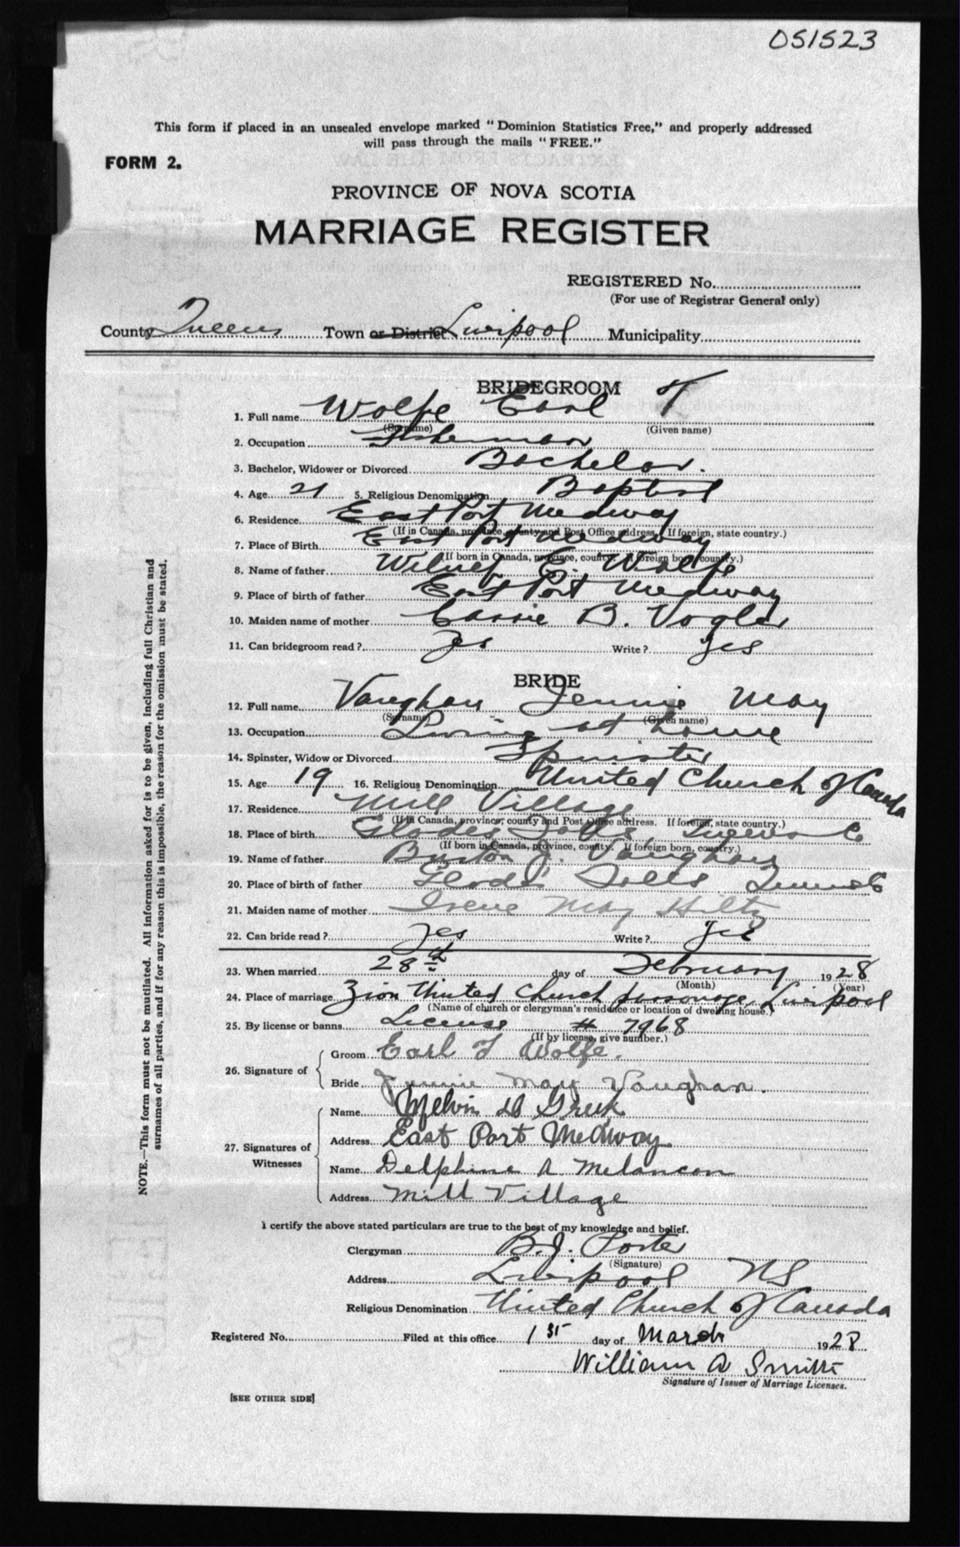 051523
This form if placed in an unsealed envelope marked "Dominion Statistics Free," and properly addressed
will pass through the mails "FREE."
FORM 2.
PROVINCE OF NOVA SCOTIA
MARRIAGE REGISTER
REGISTERED No.
(For use of Registrar General only)
County Queens Town or District Liverpool Municipality
BRIDEGROOM
1. Full name Wolfe Earl T
(Surname) (Given name)
2. Occupation Fisherman
3. Bachelor, Widower or Divorced Bachelor.
4. Age 21 5. Religious Denomination Baptist
6. Residence East Port Medway
(If in Canada, province, county and Post Office address. If foreign, state country.)
7. Place of Birth East Port Medway
(If born in Canada, province, county. If foreign born, country.)
8. Name of father E. Wolfe
9. Place of birth of father East Port Medway
10. Maiden name of mother Cassie B. Vogler
11. Can bridegroom read? Yes Write? Yes
BRIDE
12. Full name Vaughan Jennie May
(Surname) (Given name)
13. Occupation Living at home
14. Spinster, Widow or Divorced Spinster
15. Age 19 16. Religious Denomination United Church of Canada
17. Residence Mill Village
(If in Canada, province, county and Post Office address. If foreign, state country.)
18. Place of birth Glodes Falls Queens Co
(If born in Canada, province, county. If foreign born, country.)
19. Name of father Burton J. Vaughan
20. Place of birth of father Glodes Falls Queens Co
21. Maiden name of mother Irene May Hiltz
22. Can bride read? Yes Write? Yes
23. When married 28th day of February 1928
(Month) (Year)
24. Place of marriage Zion United Church parsonage Liverpool
(Name of church or clergyman's residence or location of dwelling house.)
25. By license or banns License # 7968
(If by license, give number.)
26. Signature of
Groom Earl T Wolfe.
Bride Jennie May Vaughan.
27. Signatures of Witnesses
Name Melvin D
Address East Port Medway
Name Delphine A. Melancon
Address Mill Village
I certify the above stated particulars are true to the best of my knowledge and belief.
Clergyman B. J. Porter
(Signature)
Address Liverpool NS
Religious Denomination United Church of Canada
Registered No. Filed at this office 1st day of March 1928
William A Smith
Signature of Issuer of Marriage Licenses.
[SEE OTHER SIDE]
NOTE.—This form must not be mutilated. All information asked for is to be given, including full Christian and
surnames of all parties, and if for any reason this is impossible, the reason for the omission must be stated.